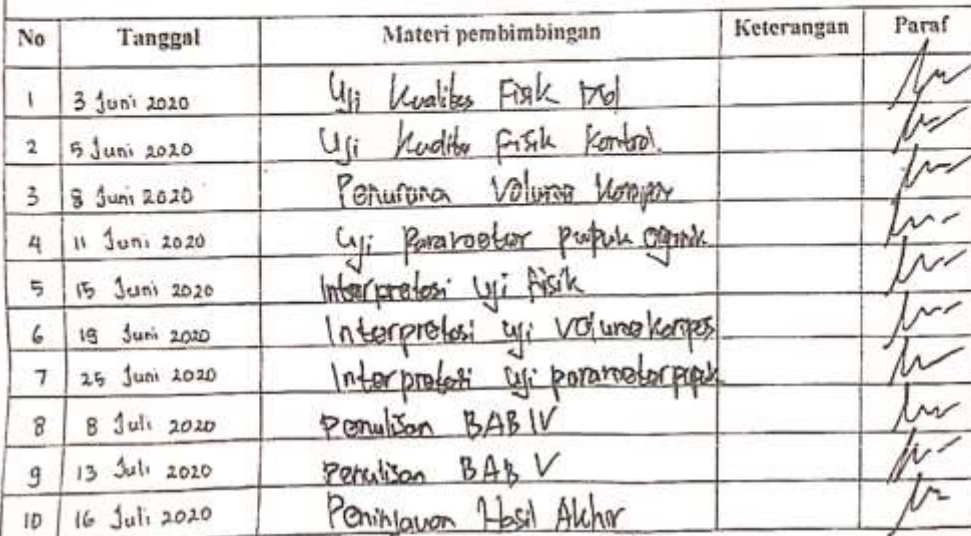 No Tanggal Materi pembimbingan Keterangan Paraf
1 3 Juni 2020 Uji Kualitas Fisik
2 5 Juni 2020 Uji Kualitas Fisik Kontrol.
3 8 Juni 2020 Penurunan Volume Kompos
4 11 Juni 2020 Uji Parameter pupuk organik
5 15 Juni 2020 Interpretasi Uji Fisik
6 19 Juni 2020 Interpretasi uji Volume kompos
7 25 Juni 2020 Interpretasi uji parameter pupuk
8 8 Juli 2020 Penulisan BAB IV
9 13 Juli 2020 Penulisan BAB V
10 16 Juli 2020 Peninjauan Hasil Akhir